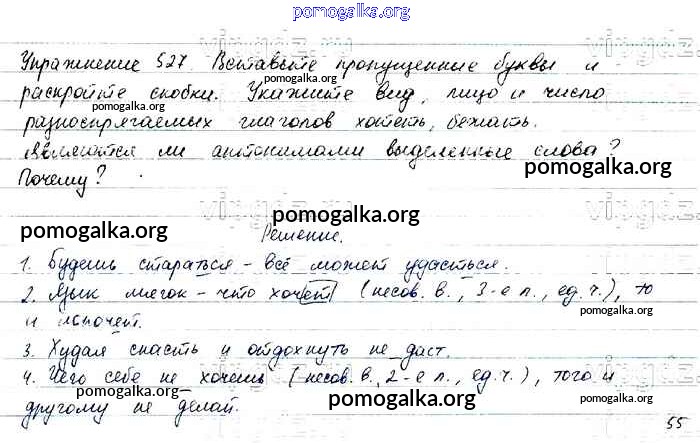 pomogalka.org
Упражнение 527. Вставьте пропущенные буквы и
pomogalka.org
pomogalka.org
раскройте скобки. Укажите вид, лицо и число
pomogalka.org
разноспрягаемых глаголов хотеть, бежать.
Являются ли антонимами выделенные слова?
pomogalka.org
Почему?
pomogalka.org
pomogalka.org
pomogalka.org
Решение.
1. Будешь стараться - всё может удасться.
2. Язык мягок - что хочет (несов. в., 3-е л., ед. ч.), то
pomogalka.org
и лопочет.
3. Худая снасть и отдохнуть не даст.
pomogalka.org
4. Чего себе не хочешь (несов. в., 2-е л., ед. ч.), того и
pomogalka.org
pomogalka.org
pomogalka.org
другому не делай.
55